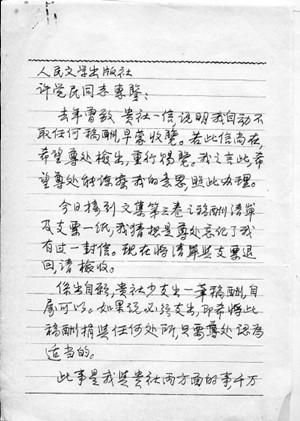 人民文学出版社
许觉民同志尊鉴：
去年曾致 贵社一信说明我自动不
取任何稿酬，早蒙收览。若此信尚在，
希望尊处检出，重行赐览。我之言此，希
望尊处能谅察我的意思照此办理。
今日接到文集第三卷之稿酬清单
及支票一纸，我猜想是尊处忘记了我
有过一封信。现在将清单与支票退
回，请检收。
倘出自愿，贵社少支出一笔稿酬，自
属可以。如果说必须支出，即希将此
稿酬捐与任何处所，只需尊处认为
适当的。
此事是我与贵社两方面的事，千万